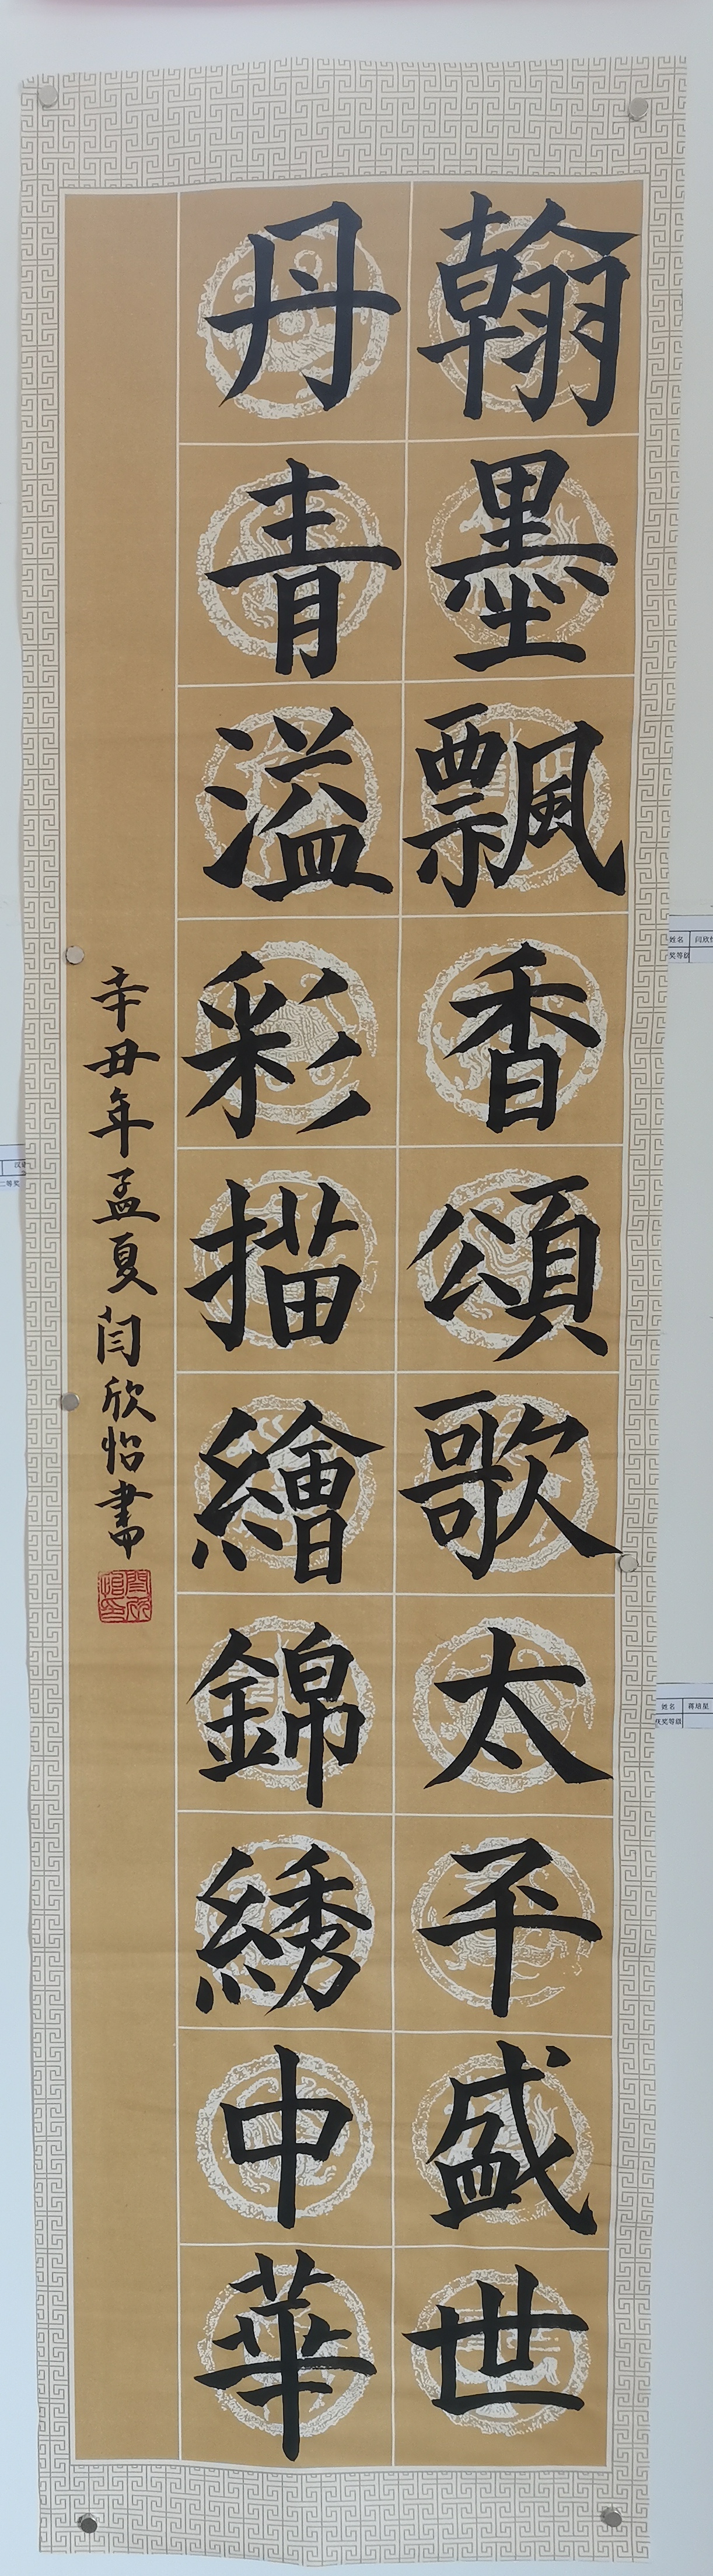 翰墨飄香頌歌太平盛世
丹青溢彩描繪錦綉中華
辛丑年孟夏闫欣怡書
姓名 闫欣
奖等级
姓名 蒋培星
获奖等级
汉语
二等奖